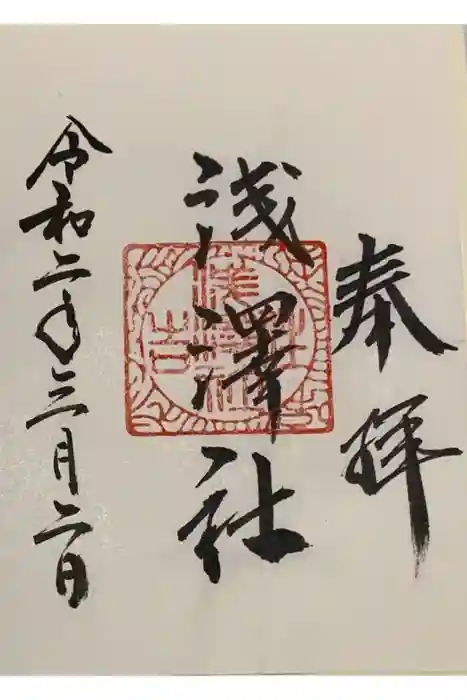 奉拝
浅澤社
令和二年三月二日